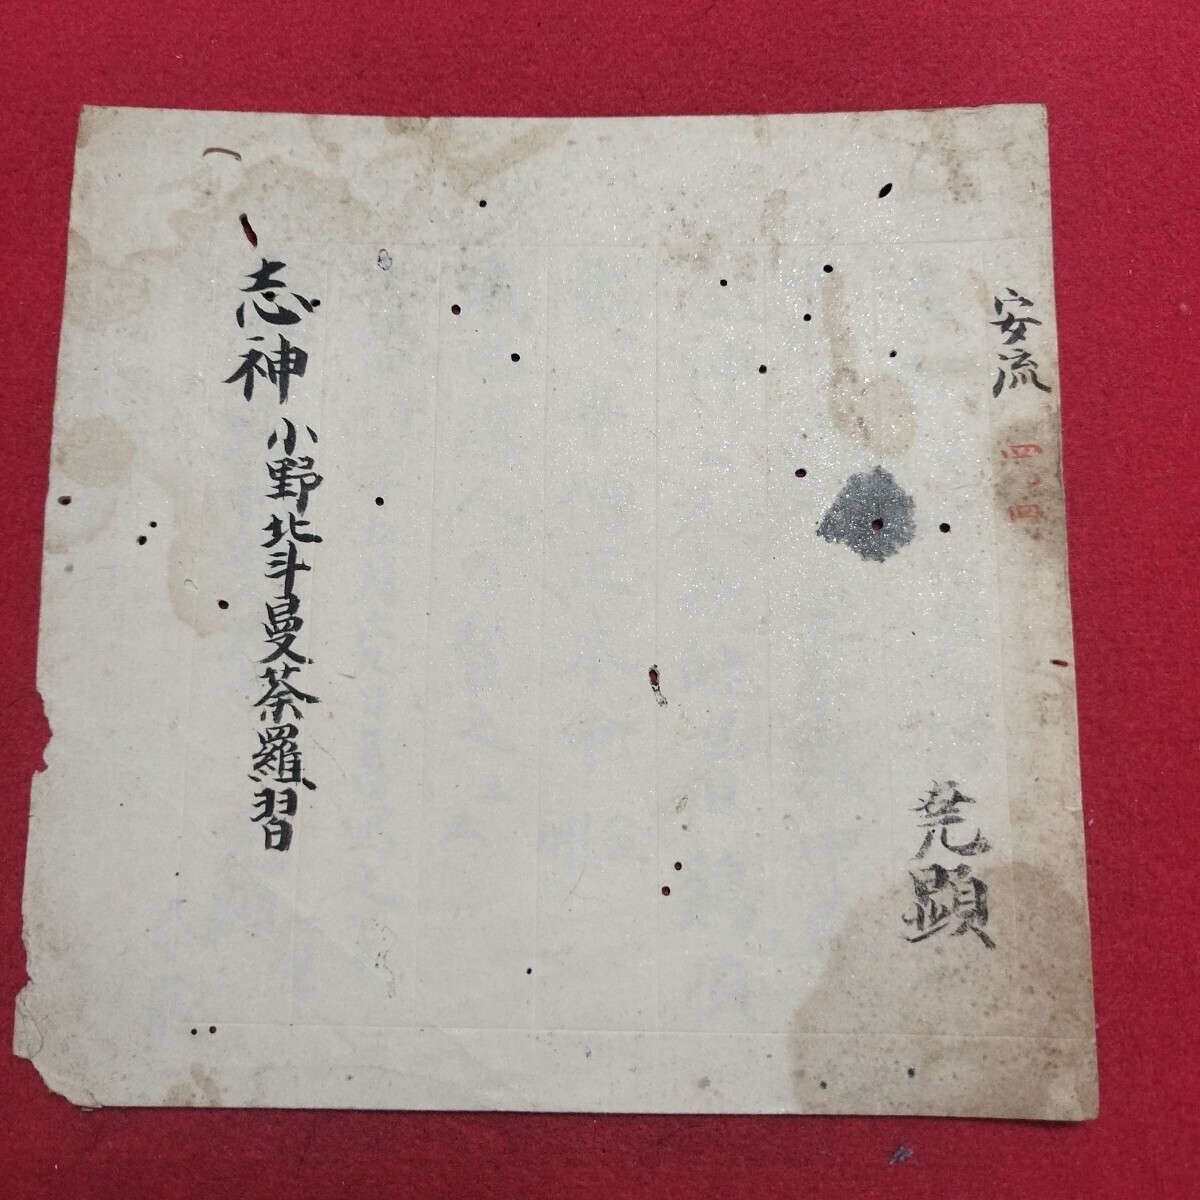 安流
四ノ四
尭顕
志神 小野北斗曼荼羅習